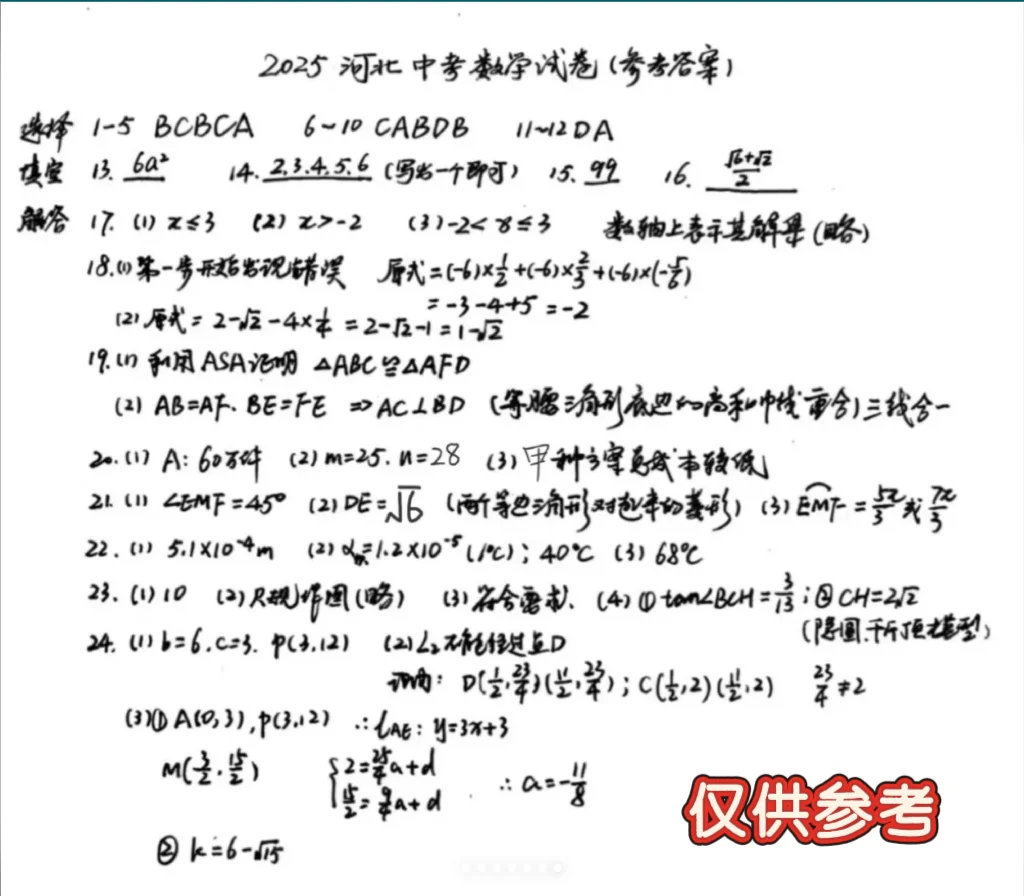 2025 河北中考数学试卷(参考答案)
选择 1-5 BCBCA 6~10 CABDB 11~12 DA
填空 13. 6a² 14. 2.3.4.5.6 (写出一个即可) 15. 99 16. (√6+√2)/2
解答 17. (1) x≤3 (2) x>-2 (3) -2<x≤3 数轴上表示其解集(略)
18.(1)第一步开始出现错误 原式=(-6)×1/2+(-6)×2/3+(-6)×(-5/6)
=-3-4+5=-2
(2)原式=2-√2-4×1/4=2-√2-1=1-√2
19.(1) 利用ASA证明 △ABC≌△AFD
(2) AB=AF. BE=FE ⇒AC⊥BD (等腰三角形底边的高和中线重合)三线合一
20.(1) A: 60万件 (2) m=25. n=28 (3) 甲种方案总成本较低
21.(1) ∠EMF=45° (2) DE=√6 (两个等边三角形对起来的菱形) (3) EMF=5π/3或7π/3
22.(1) 5.1×10⁻⁴m (2) α=1.2×10⁻⁵(1/℃); 40℃ (3) 68℃
23.(1)10 (2)尺规作图(略) (3)符合要求. (4)① tan∠BCH=3/13;② CH=2√2
(隐圆.千斤顶模型)
24.(1) b=6.c=3. P(3,12) (2) L₂不能经过点D
证明: D(1/2,23/4)(11/2,23/4); C(1/2,2)(11/2,2) 23/4≠2
(3)① A(0,3),P(3,12) ∴lAE: y=3x+3
M(3/2,15/2) {2=25/4a+d
15/2=9/4a+d ∴a=-11/8
② k=6-√15
仅供参考